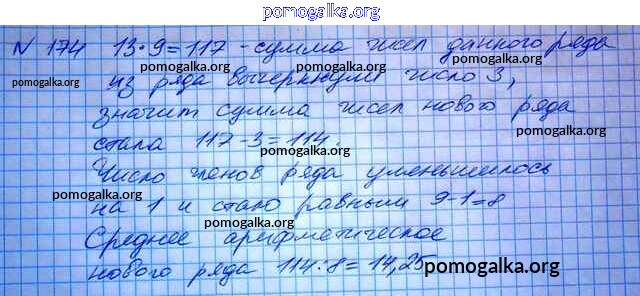 pomogalka.org
N 174 13·9=117 - сумма чисел данного ряда
pomogalka.org
из ряда вычеркнули число 3,
pomogalka.org
pomogalka.org
значит сумма чисел нового ряда
pomogalka.org
стала 117-3=114.
pomogalka.org
pomogalka.org
Число членов ряда уменьшилось
pomogalka.org
на 1 и стало равным 9-1=8
pomogalka.org
pomogalka.org
Среднее арифметическое
нового ряда 114:8=14,25
pomogalka.org